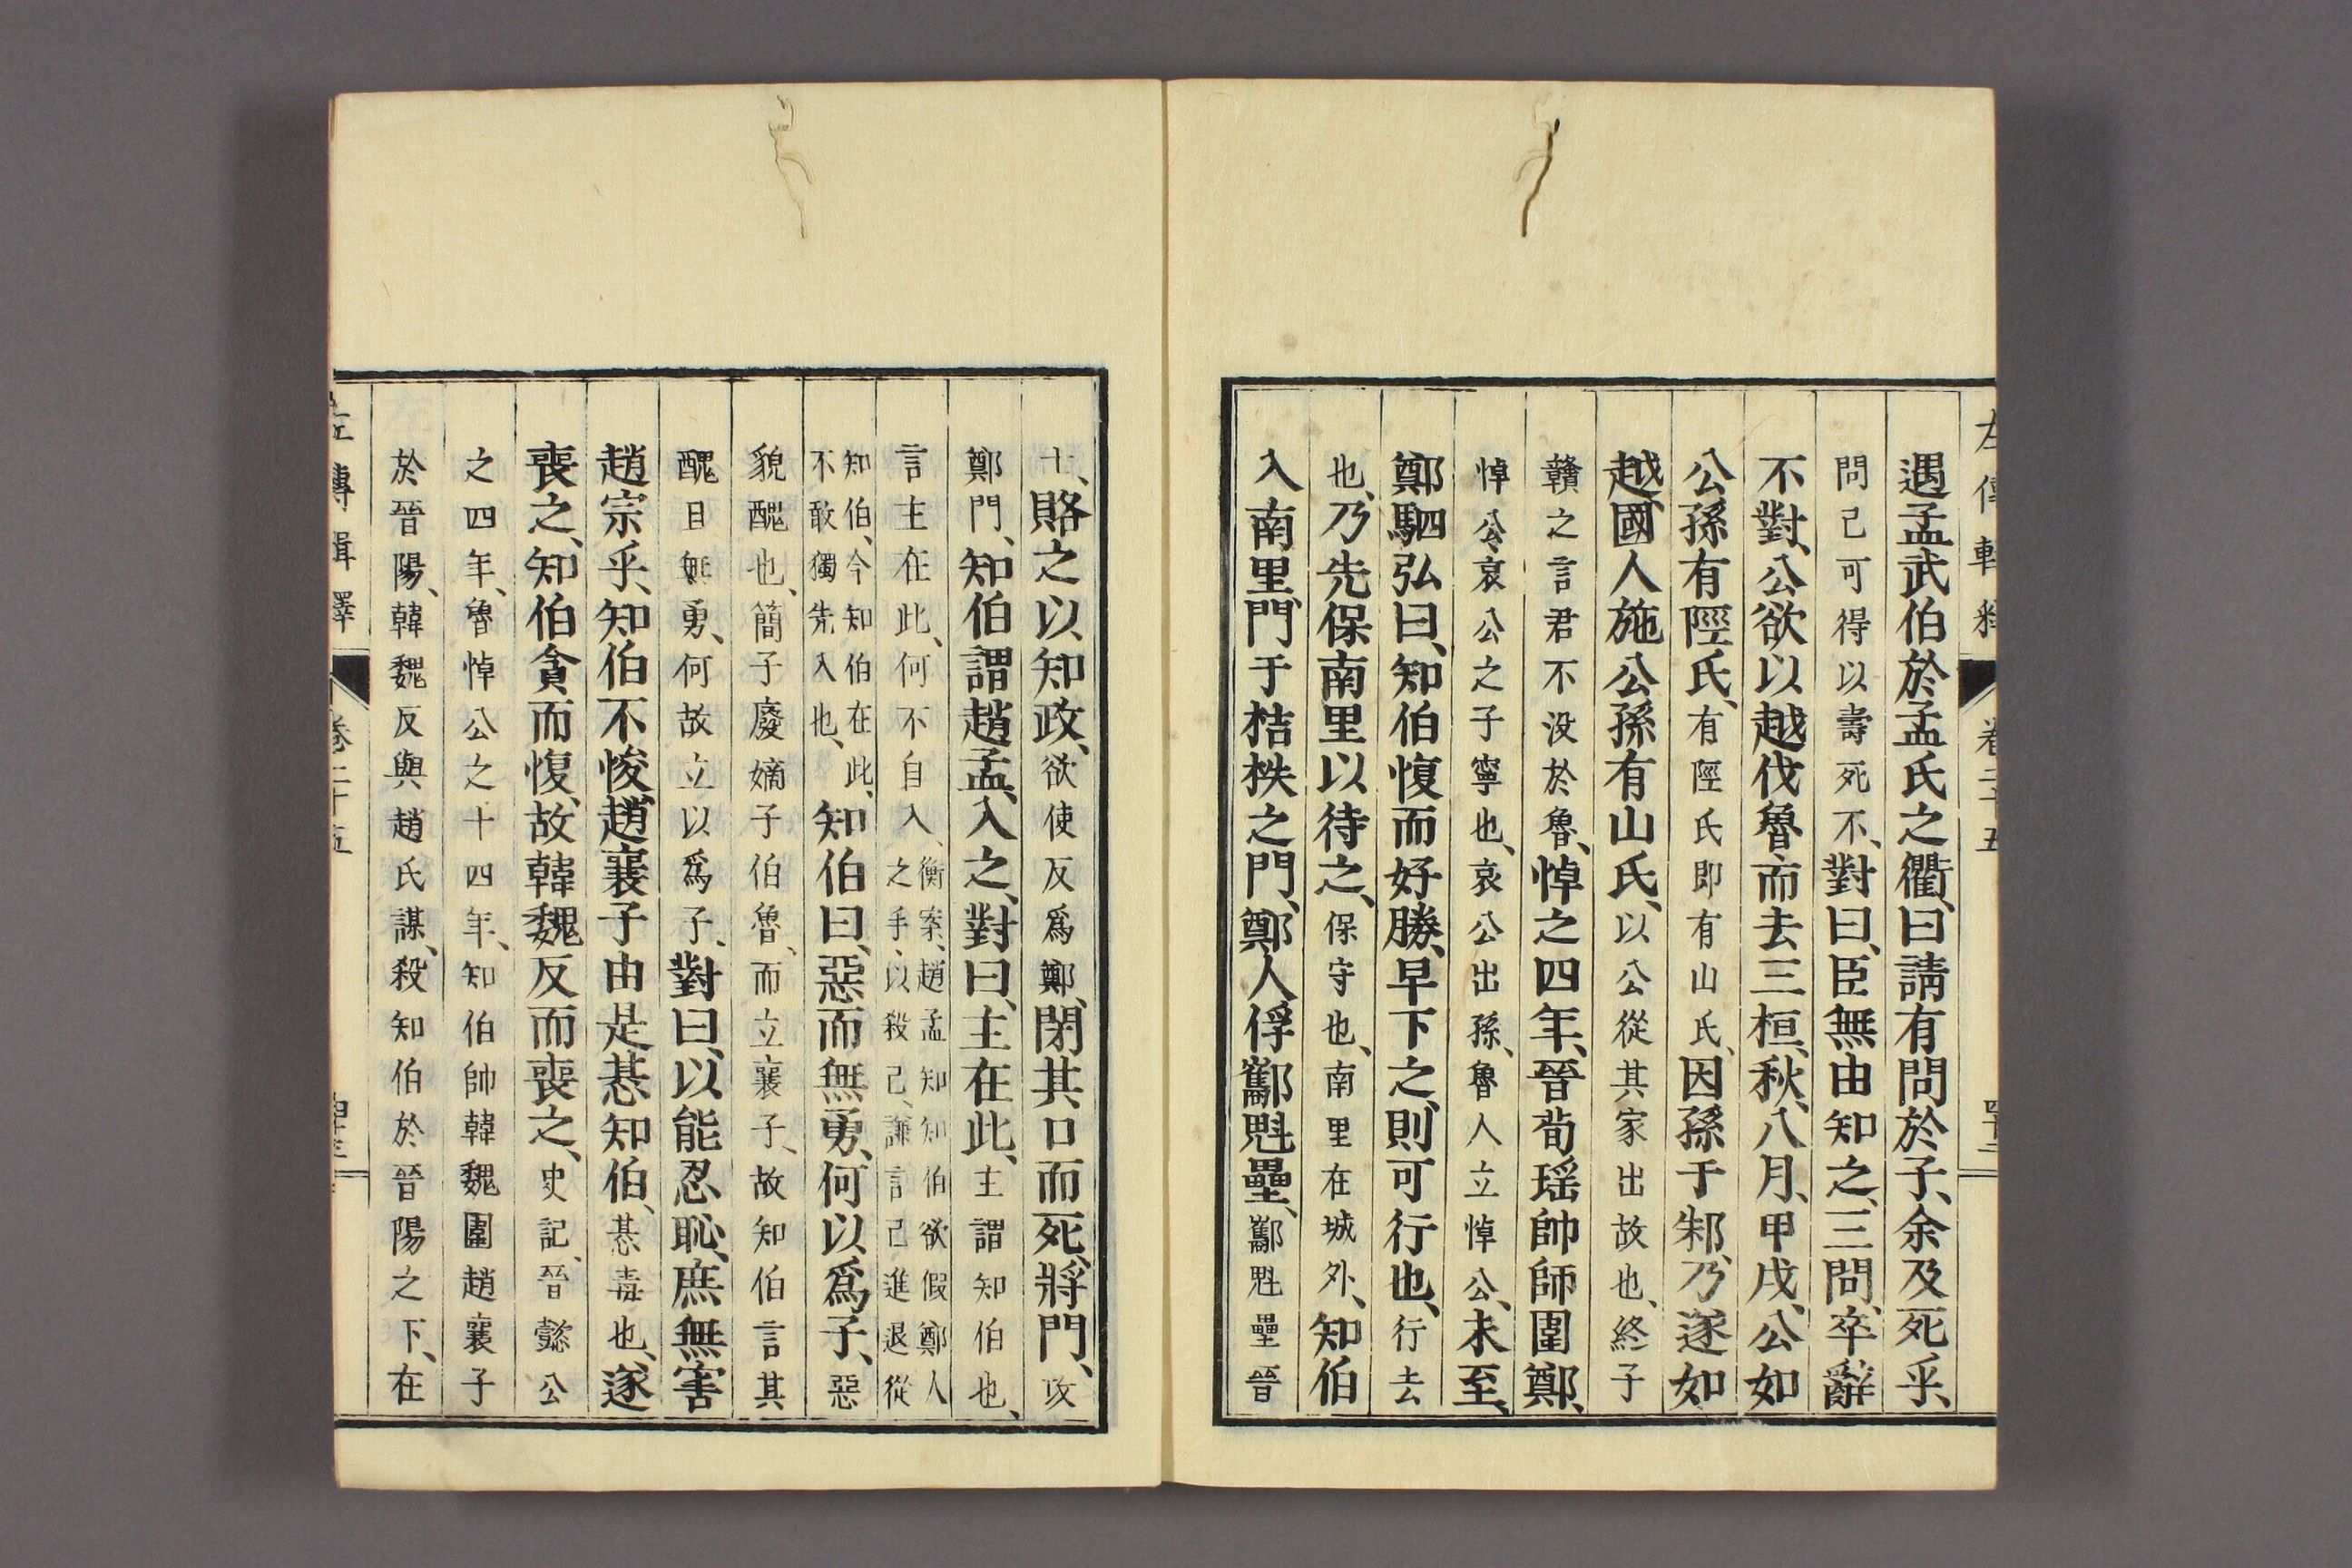 遇孟武伯於孟氏之衢、曰請有問於子、余及死乎、
問己可得以壽死不、對曰、臣無由知之、三問、卒辭
不對、公欲以越伐魯而去三桓、秋、八月、甲戌、公如
公孫有陘氏、有陘氏即有山氏、因孫于邾、乃遂如
越、國人施公孫有山氏、以公從其家出故也、終子
贛之言君不没於魯、悼之四年、晉荀瑶帥師圍鄭、
悼公、哀公之子寧也、哀公出孫、魯人立悼公、未至、
鄭駟弘曰、知伯愎而好勝、早下之、則可行也、行去
也、乃先保南里以待之、保守也、南里在城外、知伯
入南里、門于桔柣之門、鄭人俘酅魁壘、酅魁壘晉
士、賂之以知政、欲使反爲鄭、閉其口而死、將門、攻
鄭門、知伯謂趙孟、入之、對曰、主在此、主謂知伯也、
言主在此、何不自入、衡案、趙孟知知伯欲假鄭人之手、以殺己、謙言己進退從
知伯、今知伯在此、不敢獨先入也、知伯曰、惡而無勇、何以爲子、惡
貌醜也、簡子廢嫡子伯魯、而立襄子、故知伯言其
醜且無勇、何故立以爲子、對曰、以能忍恥、庶無害
趙宗乎、知伯不悛、趙襄子由是惎知伯、惎毒也、遂
喪之、知伯貪而愎、故韓魏反而喪之、史記、晉懿公
之四年、魯悼公之十四年、知伯帥韓魏圍趙襄子
於晉陽、韓魏反與趙氏謀、殺知伯於晉陽之下、在
左傳輯釋 卷二十五